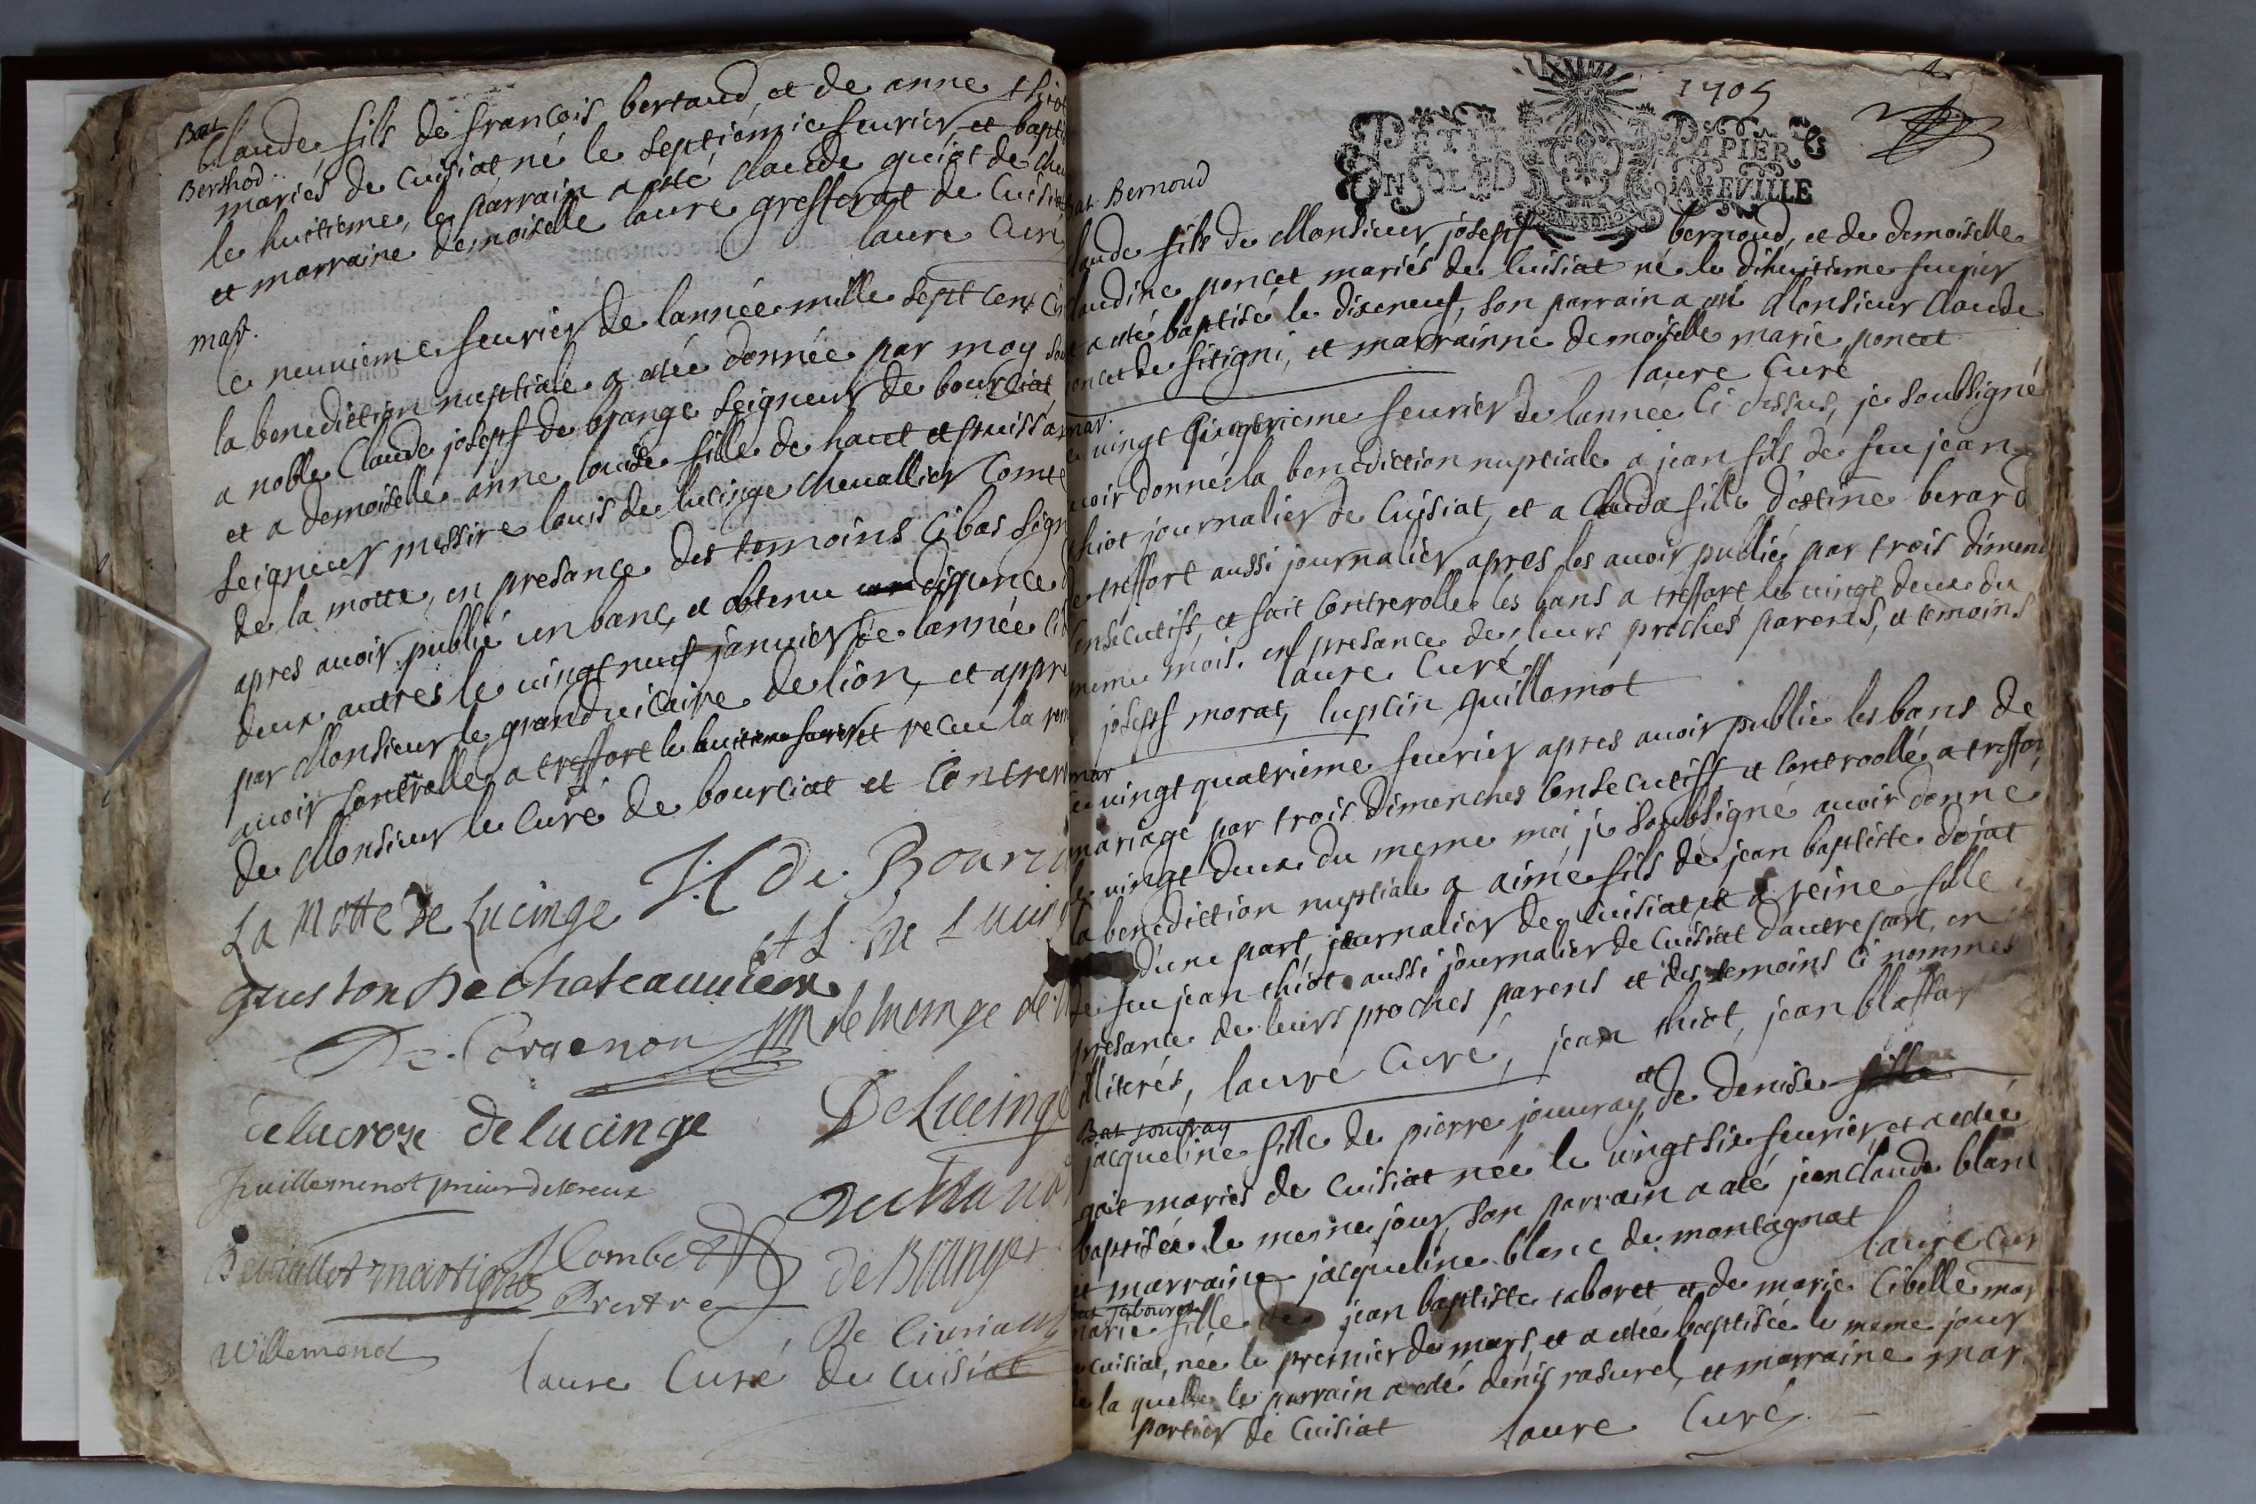 Bat
Berthod
Claude fils de francois bertaud, et de anne thiot
mariés de Cuisiat né le septiéme feurier et bapti
le huitieme, le parrain a esté Claude guiot de
et marraine demoiselle laure gresferat de Cuisia
laure Curé
mar.
Ce neuuieme feurier de lannée mille sept cent
la benediction nuptiale a estée donnée par moy
a noble Claude josepf de brange seigneur de bourciat
et a demoiselle anne louise fille de haut et puissa
seigneur messire louis de lucinge cheuallier Comte
de la motte, en presance des temoins Cibas sign
apres auoir publié un banc, et obtenu dispence
deux autres le uingt neuf januier de lannée
par Monsieur le grand uicaire de lion, et appre
auoir controllé a treffort le huitieme feurier et receu la
de Monsieur le Curé de bourciat et Contrer
La Motte De Lucinge
De Bourc
De Lucing
De Chateauuieux
De Coragenon
de lucinge de
delacroze delucinge
DeLucinge
prieur
De
Combet
Prestre
de Branges
martignas
De Ciuriaux
Willemenot
laure Curé de Cuisiat
1705
PETIT PAPIER
UN SOL LED LA FEUILLE
Bat Bernoud
laude fils de Monsieur josepf bernoud, et de demoiselle
laudine poncet mariés de Cuisiat né le dihuitieme feurier
a esté baptisé le dixeneuf, son parrain a esté Monsieur Claude
oncet de sitigni, et marrainne demoiselle marie poncet
laure Curé
mar.
uingt feurier de lannée Ci dessus, je soubsigné
auoir donné la benediction nuptiale a jean fils de feu jean
thiot journalier de Cuisiat, et a Clauda fille d'estine berard
de treffort aussi journalier, apres les auoir publié par trois dimen
Consecutifs, et fait Controroller les bans a treffort le uingt deux du
meme mois, en presance de leurs proches parens, et temoins
laure Curé
josepf morat, lupcin guillomot
mar
Ce uingt quatrieme feurier apres auoir publie les bans de
mariage par trois dimenches Consecutifs et Controollé a treffort
le uingt deux du meme moi, je soubsigné auoir donné
la benediction nuptiale a aimé fils de jean baptiste dojat
d'une part journalier de Cuisiat, et a reine fille
de feu jean thiot aussi journalier de Cuisiat dautre part, en
presance de leurs proches parens et des temoins Ci nommés
illiterés, laure Curé, jean thiot, jean blaffar
Bat jouuray
jacqueline fille de pierre jouuray, et de denise fille
gait mariés de Cuisiat née le uingt six feurier, et a estée
baptisée le meme jour, son parrain a esté jean claude blanc
et marraine jacqueline blanc de montagnat
laure Cur
bat
marie fille de jean baptiste taboret et de marie Cibelle mar
Cuisiat, née le premier de mars, et a estée baptisée le meme jour
de la quelle le parrain a esté denis rasurel, et marraine mar
portier de Cuisiat
laure Curé